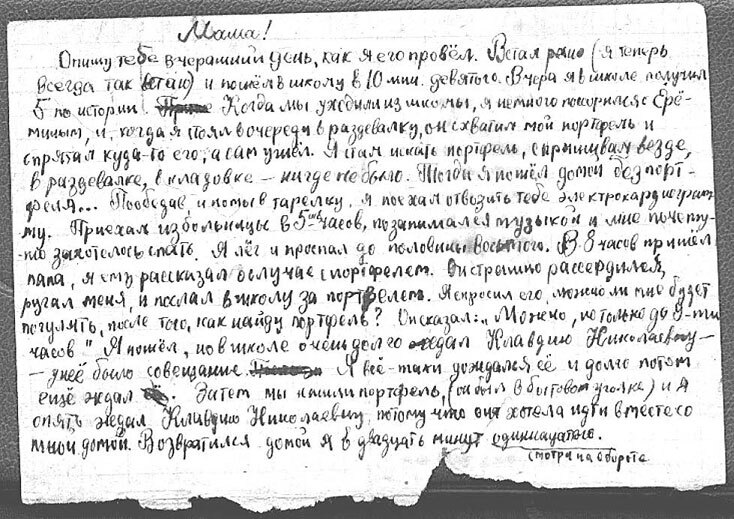 Мама!
Опишу тебе вчерашний день, как я его провёл. Встал рано (я теперь
всегда так встаю) и пошёл в школу в 10 мин. девятого. Вчера я в школе получил
5 по истории. Когда мы уходили из школы, я немного повозился с Ерё-
миным, и, когда я стоял в очереди в раздевалку, он схватил мой портфель и
спрятал куда-то его, а сам ушёл. Я стал искать портфель, спрашивал везде,
в раздевалке, в кладовке – нигде не было. Тогда я пошёл домой без порт-
феля... Пообедав и помыв тарелку, я поехал отвозить тебе электрокардиограм-
му. Приехал из больницы в 5 часов, позанимался музыкой и мне почему-
то захотелось спать. Я лёг и проспал до половины восьмого. В 8 часов пришёл
папа, я ему рассказал о случае с портфелем. Он страшно рассердился,
ругал меня, и послал в школу за портфелем. Я спросил его, можно ли мне будет
погулять, после того, как найду портфель? Он сказал: „Можно, но только до 9-ти
часов". Я пошёл, но в школе очень долго ждал Клавдию Николаевну –
– у неё было совещание. Я всё-таки дождался её и долго потом
ещё ждал. Затем мы нашли портфель, (он был в бытовом уголке) и я
опять ждал Клавдию Николаевну, потому что она хотела идти вместе со
мной домой. Возвратился домой я в двадцать минут одиннадцатого.
смотри на обороте